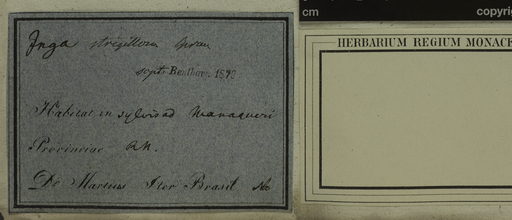 Inga strigillosa Spruce
sept. Bentham. 1873
Habitat in sylvis ad Manaqueri
Provinciae R.N.
Dr Martius Iter Brasil No
cm
copyrig
HERBARIUM REGIUM MONACE